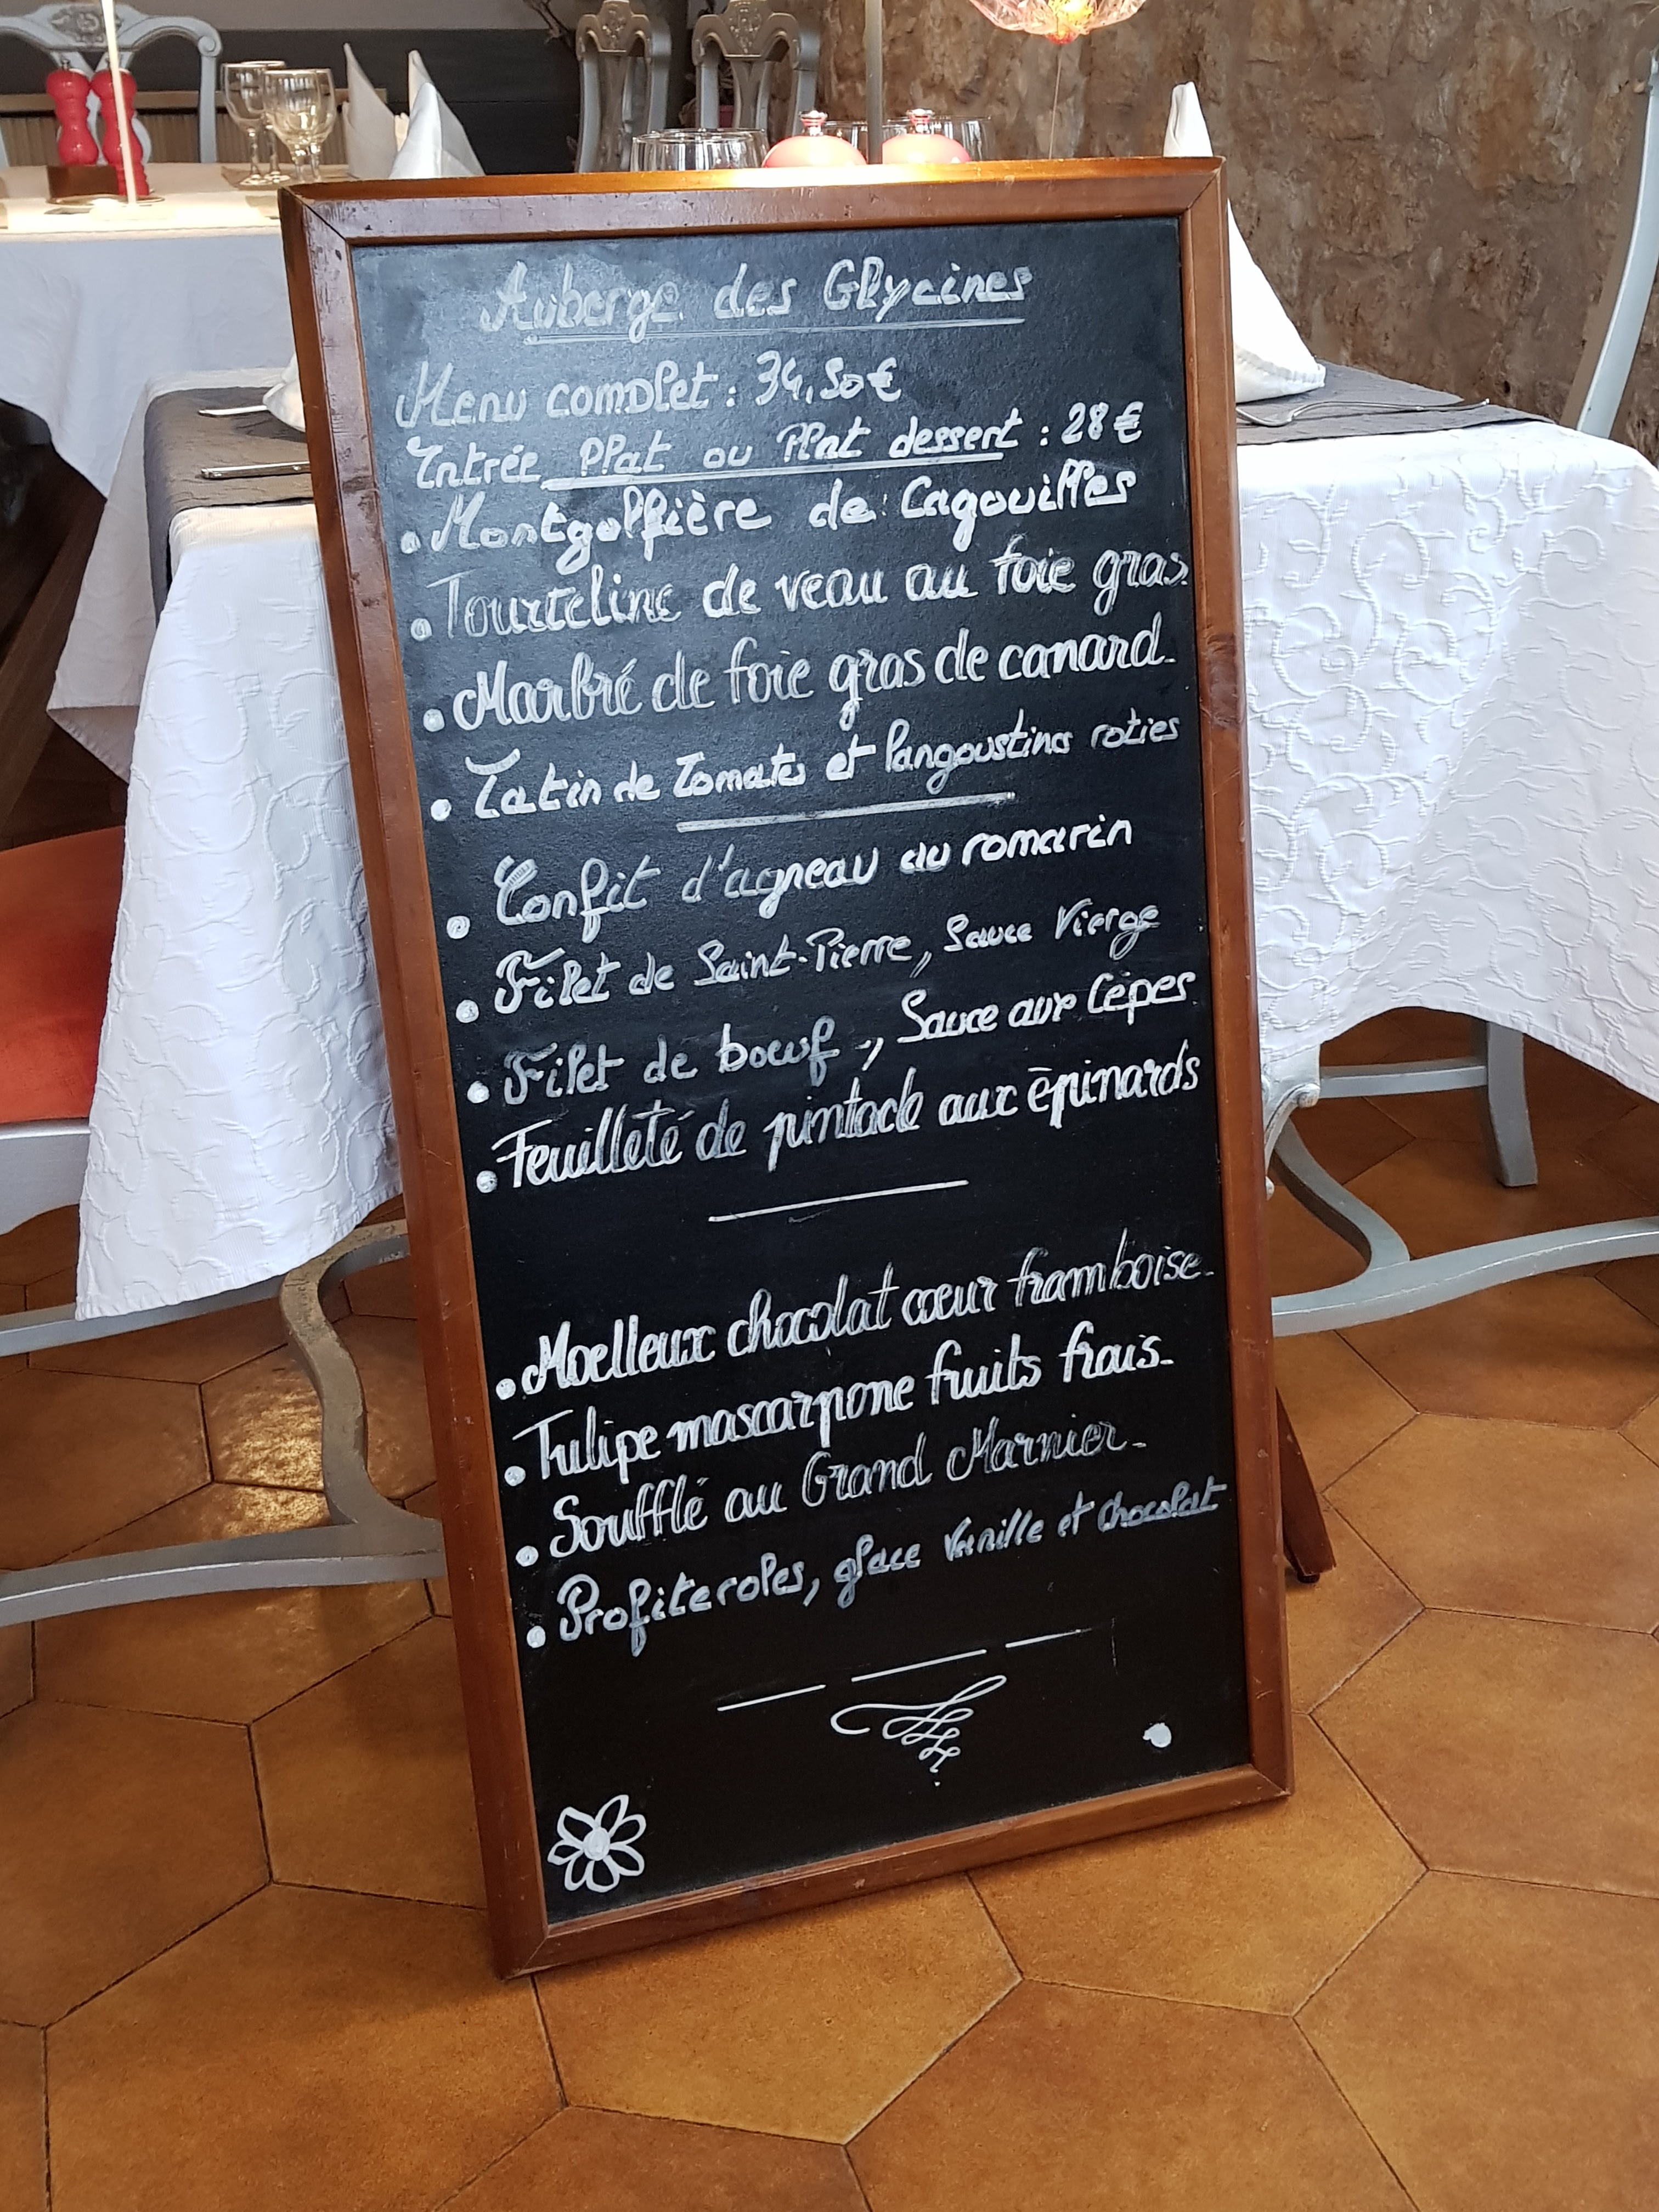 Auberge des Glycines
Menu complet : 34,50€
Entrée Plat ou Plat dessert : 28€
• Montgolfière de Cagouilles
• Tourteline de veau au foie gras
• Marbré de foie gras de canard
• Tatin de Tomates et langoustines roties
• Confit d'agneau au romarin
• Filet de Saint-Pierre, Sauce Vierge
• Filet de boeuf, Sauce aux Cèpes
• Feuilleté de pintade aux épinards
• Moelleux chocolat cœur framboise
• Tulipe mascarpone fruits frais
• Soufflé au Grand Marnier
• Profiteroles, glace Vanille et chocolat